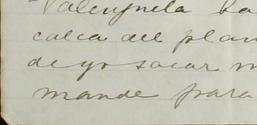 Valenzuela ba
calca del plan
de yo sacar m
mande para